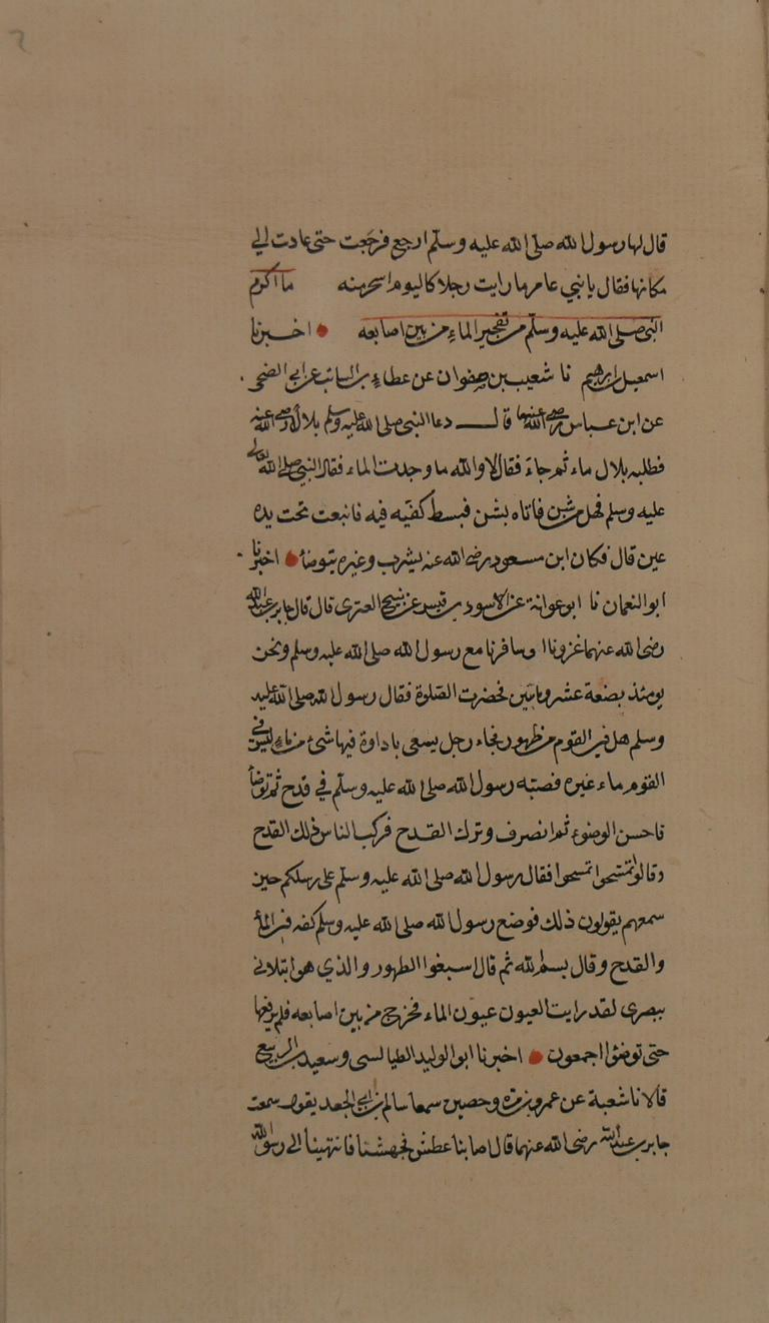 قال لها رسول الله صلى الله عليه وسلم ارجع فرجعت حتى عادت الى
مكانها فقال يا بني عامر ما رايت رجلا كاليوم اسحر منه ما اكرم
النبى صلى الله عليه وسلم من تفجير الماء من بين اصابعه اخبرنا
اسمعيل بن ابرهيم نا شعيب بن صفوان عن عطاء بن السائب عن ابي الضحى
عن ابن عباس رضي الله عنهما قال دعا النبي صلى الله عليه وسلم بلالا رضي الله عنه
فطلب بلال ماء ثم جاء فقال لا والله ما وجدت الماء فقال النبي صلى الله تعالى
عليه وسلم فهل من شن فاتاه بشن فبسط كفيه فيه فانبعث تحت يده
عين قال فكان ابن مسعود رضى الله عنه يشرب وغيره يتوضأ اخبرنا
ابو النعمان نا ابو عوانة عن الاسود بن قيس عن نبيح العنزى قال قال جابر بن عبد الله
رضى الله عنهما غزونا او سافرنا مع رسول الله صلى الله عليه وسلم ونحن
يومئذ بضعة عشر ومايتين فحضرت الصلوة فقال رسول الله صلى الله عليه
وسلم هل في القوم من طهور فجاء رجل يسعى باداوة فيها شئ من ماء ليس في
القوم ماء غيره فصبه رسول الله صلى الله عليه وسلم في قدح ثم توضأ
فاحسن الوضوء ثم انصرف وترك القدح فركب الناس ذلك القدح
وقالوا تمسحوا تمسحوا فقال رسول الله صلى الله عليه وسلم على رسلكم حين
سمعهم يقولون ذلك فوضع رسول الله صلى الله عليه وسلم كفه في الماء
والقدح وقال بسم الله ثم قال اسبغوا الطهور والذي هو ابتلاني
ببصرى لقد رايت العيون عيون الماء تخرج من بين اصابعه فلم يرفعها
حتى توضئوا اجمعون اخبرنا ابو الوليد الطيالسى وسعيد بن الربيع
قالا نا شعبة عن عمرو بن مرة وحصين سمعا سالم بن ابي الجعد يقول سمعت
جابر بن عبد الله رضى الله عنهما قال اصابنا عطش فجهشنا فانتهينا الى رسول الله